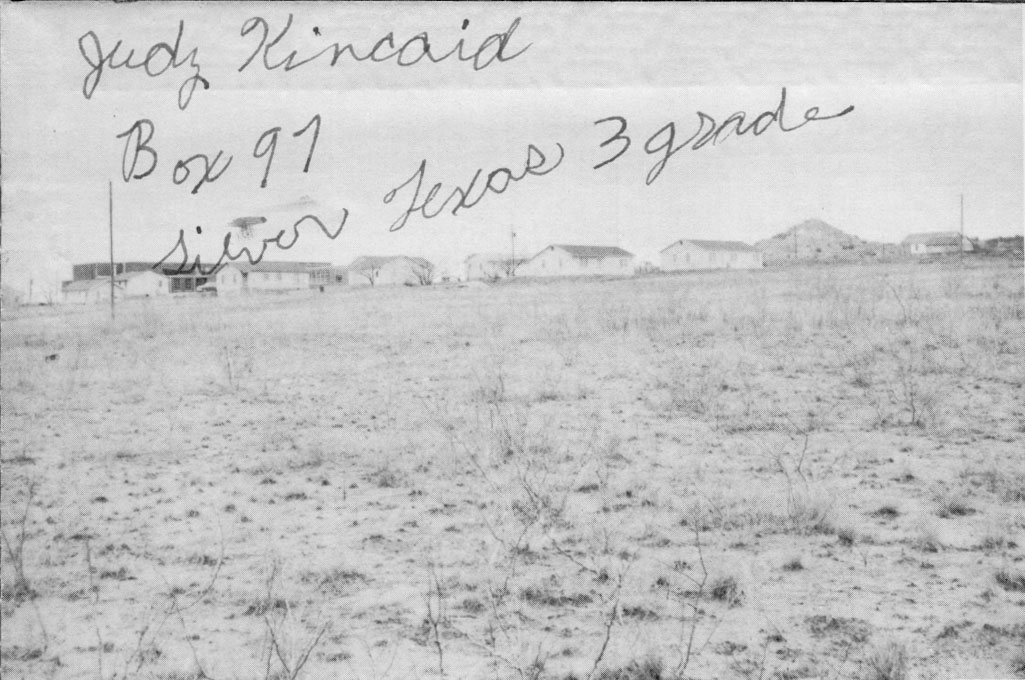 Judy Kincaid
Box 97
Silver Texas 3 grade